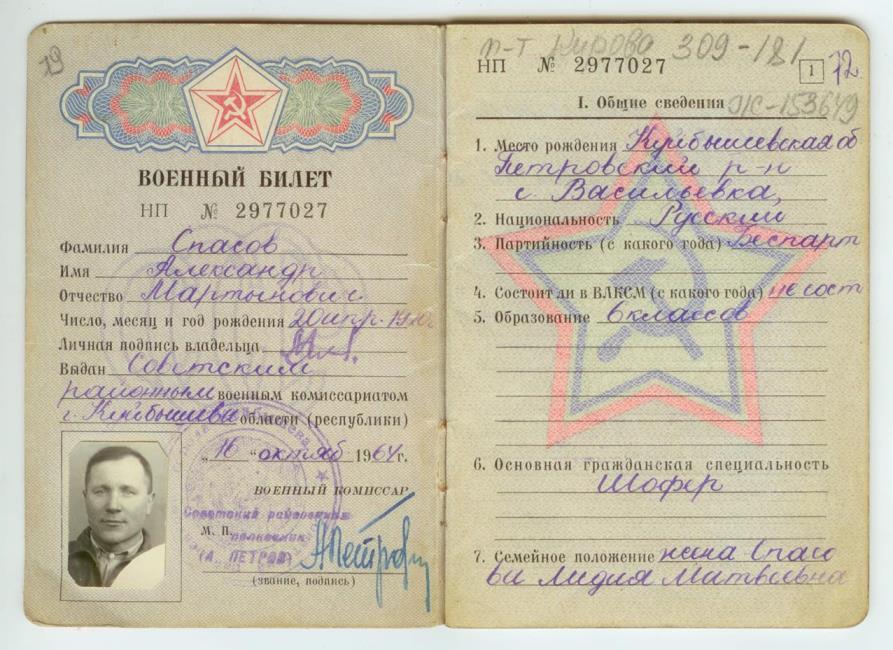 19
ВОЕННЫЙ БИЛЕТ
НП № 2977027
Фамилия Спасов
Имя Александр
Отчество Мартынович
Число, месяц и год рождения 20 апр.
Личная подпись владельца
Выдан Советским
районным военным комиссариатом
г. Куйбышева области (республики)
„16" октяб 1964 г.
ВОЕННЫЙ КОМИССАР
Советский райвоенком
М. П.
полковник
(А. ПЕТРОВ) АПетров
(звание, подпись)
п-т Кирова 309-181
НП № 2977027
1 72
I. Общие сведения
1. Место рождения Куйбышевская об
Петровский р-н
с. Васильевка,
2. Национальность Русский
3. Партийность (с какого года) Беспарт
4. Состоит ли в ВЛКСМ (с какого года) не сост
5. Образование 6 классов
6. Основная гражданская специальность
Шофер
7. Семейное положение жена Спасо
ва Лидия Матвеевна